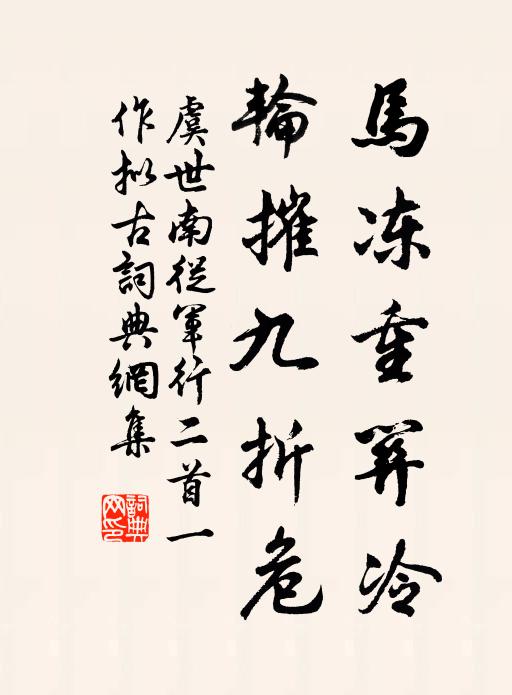 馬冻重關冷
輪摧九折危
虞世南從軍行二首一
作拟古詞典網集
詞典網印